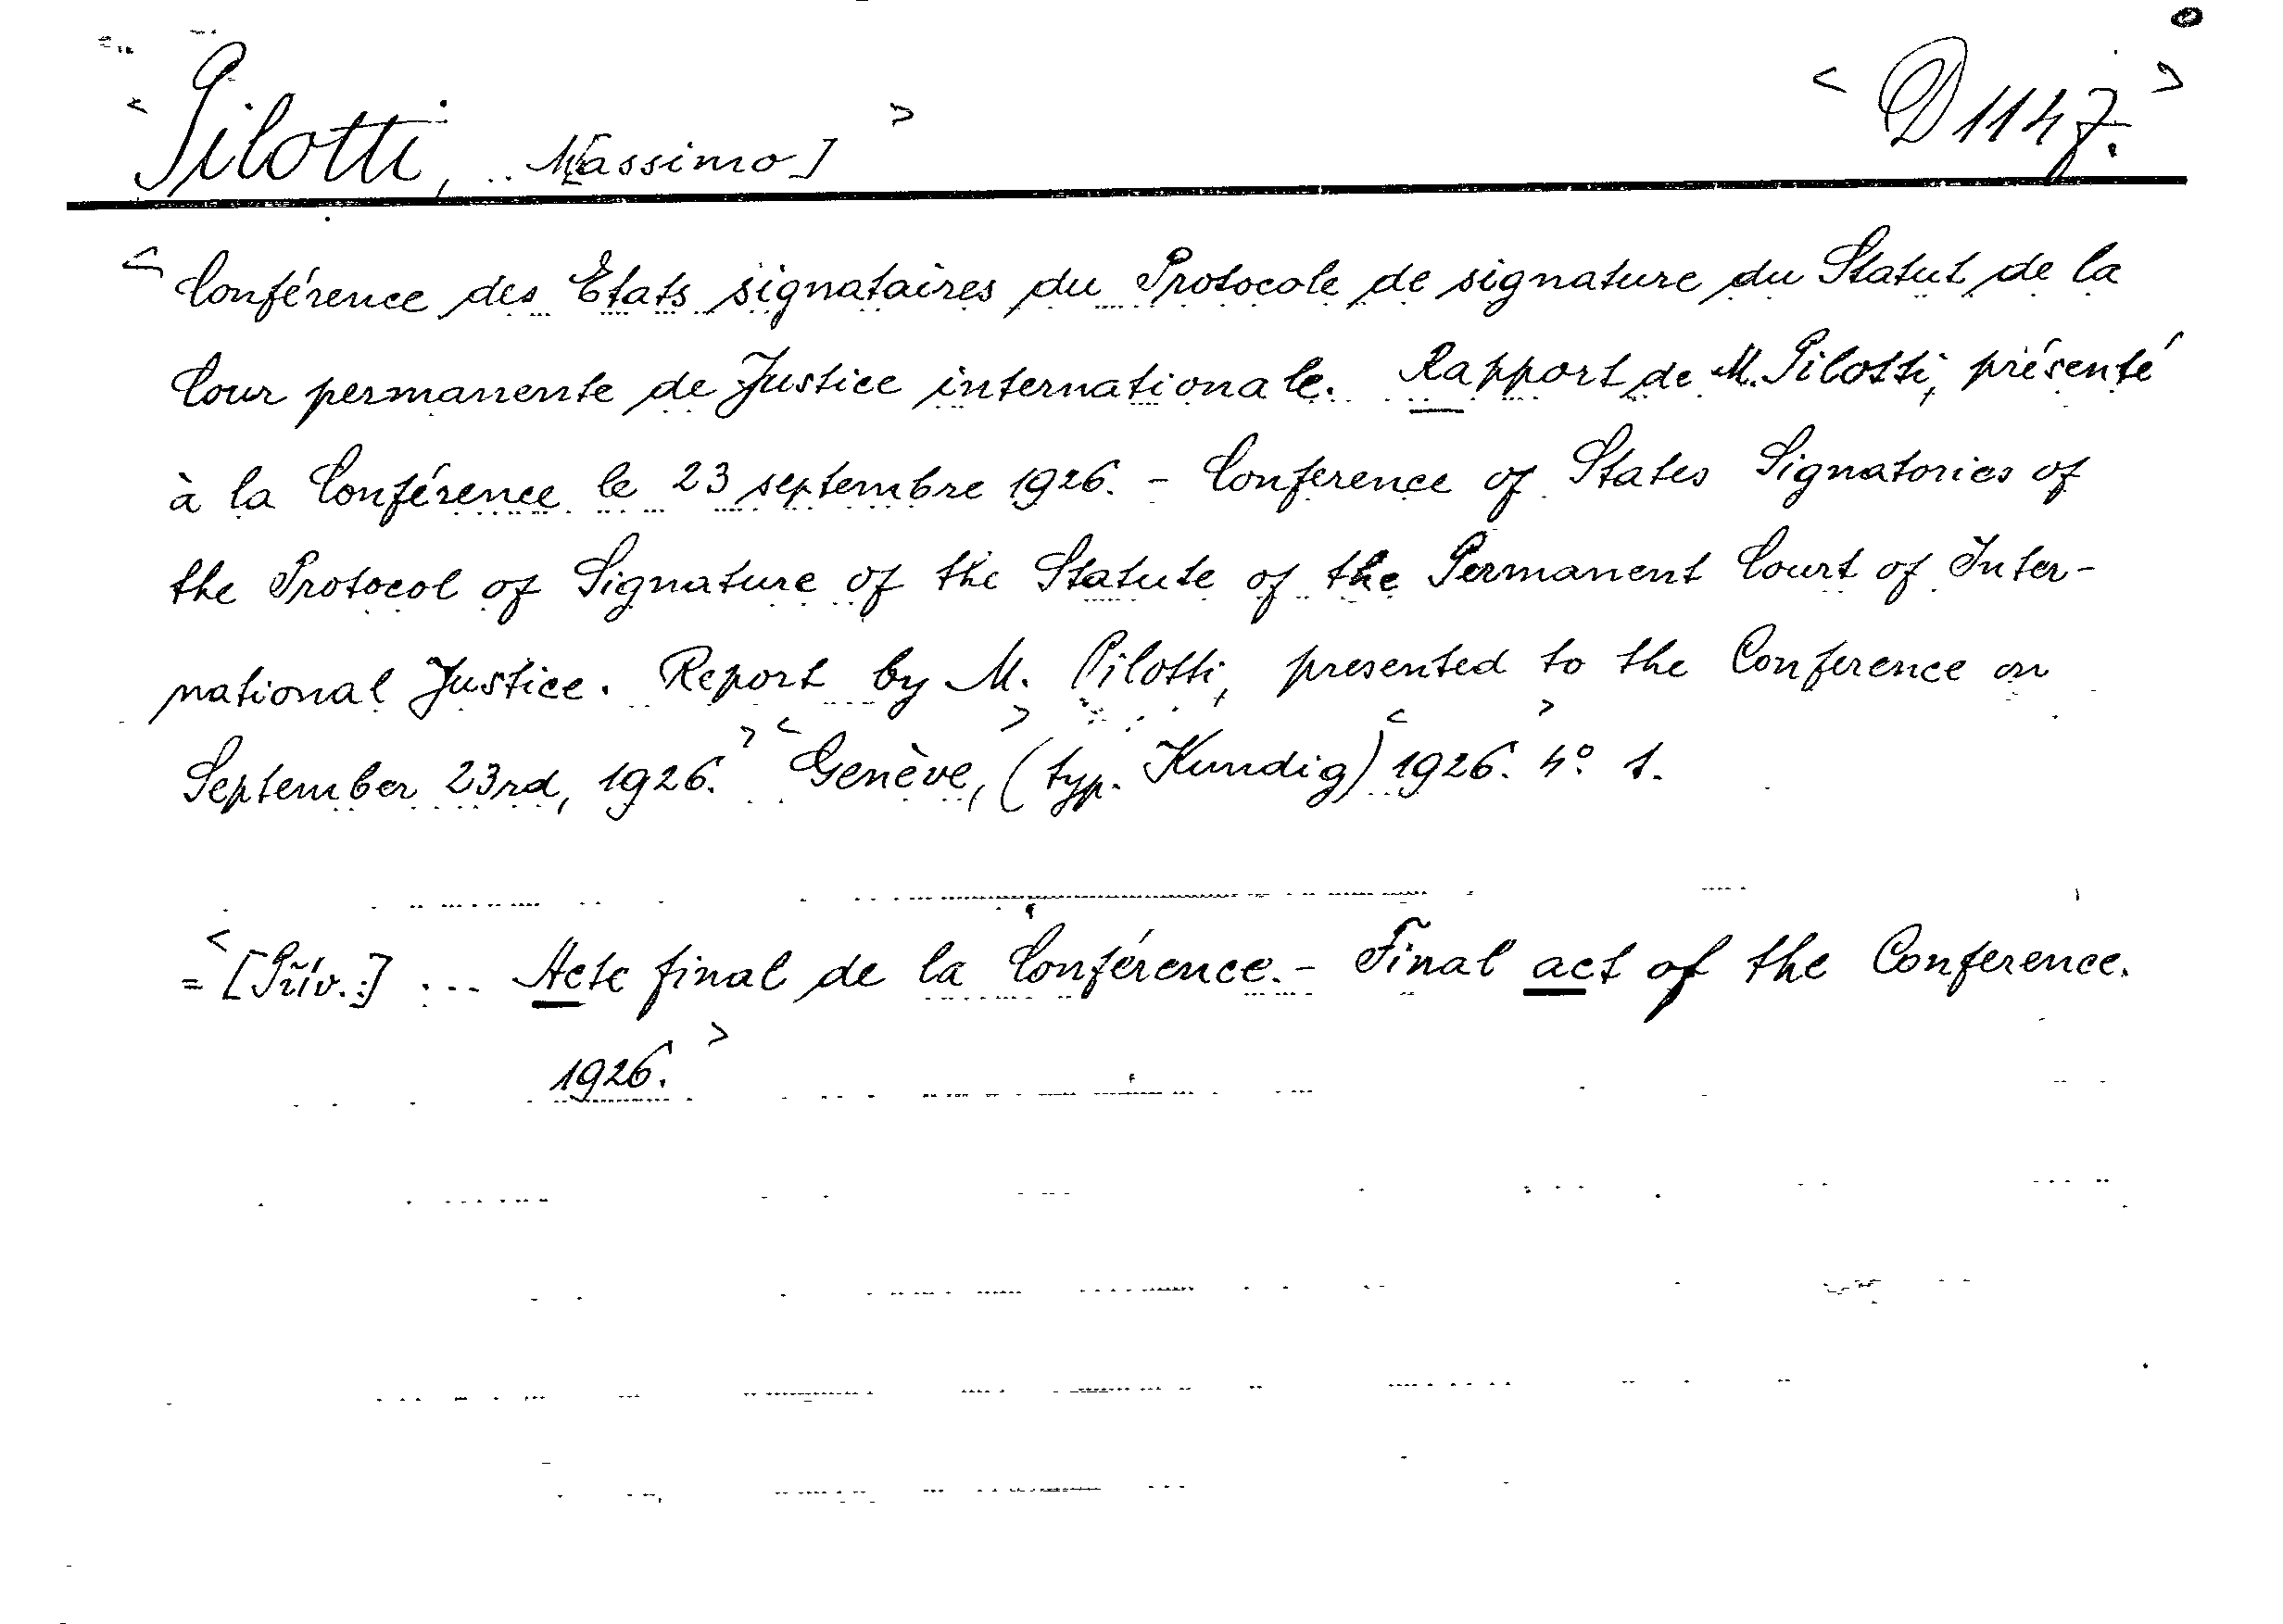 < Pilotti, [Massimo] > < D 1147. >
< Conférence des Etats signataires du Protocole de signature du Statut de la
Cour permanente de Justice internationale. Rapport de M. Pilotti, présenté
à la Conférence le 23 septembre 1926. - Conference of States Signatories of
the Protocol of Signature of the Statute of the Permanent Court of Inter-
national Justice. Report by M. Pilotti, presented to the Conference on
September 23rd, 1926. > < Genève, > (typ. Kundig) < 1926. > 4° 1.
= < [Přív.:] ... Acte final de la Conférence. - Final act of the Conference.
1926. >